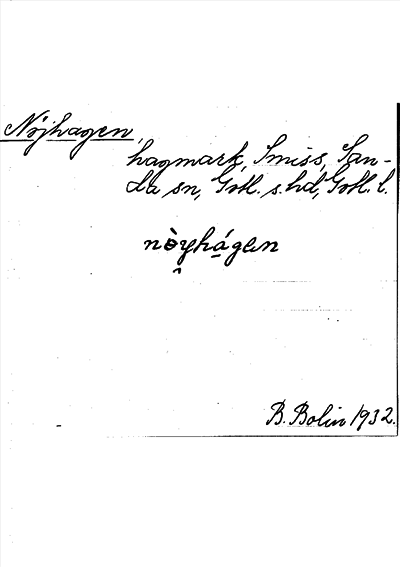 Nöjhagen,
hagmark, Smiss, San-
da sn, Gotl. s. hd, Gotl. l.
nò̯yhá̱gen
B. Bolin 1932.